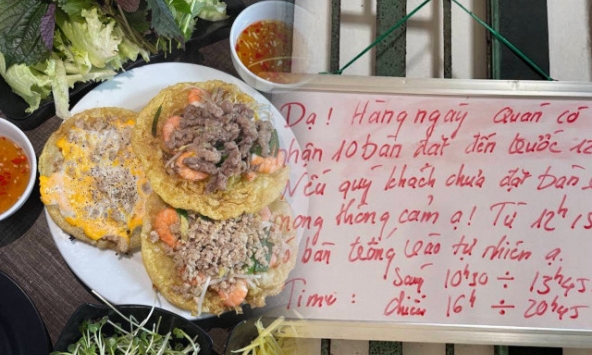 Dạ! Hàng ngày quán có
nhận 10 bàn đặt đến trước 12
Nếu quý khách chưa đặt bàn
mong thông cảm ạ! Từ 12h15
bàn trống vào tự nhiên ạ.
Sáng 10h30 ÷ 13h45
Time: chiều 16h ÷ 20h45